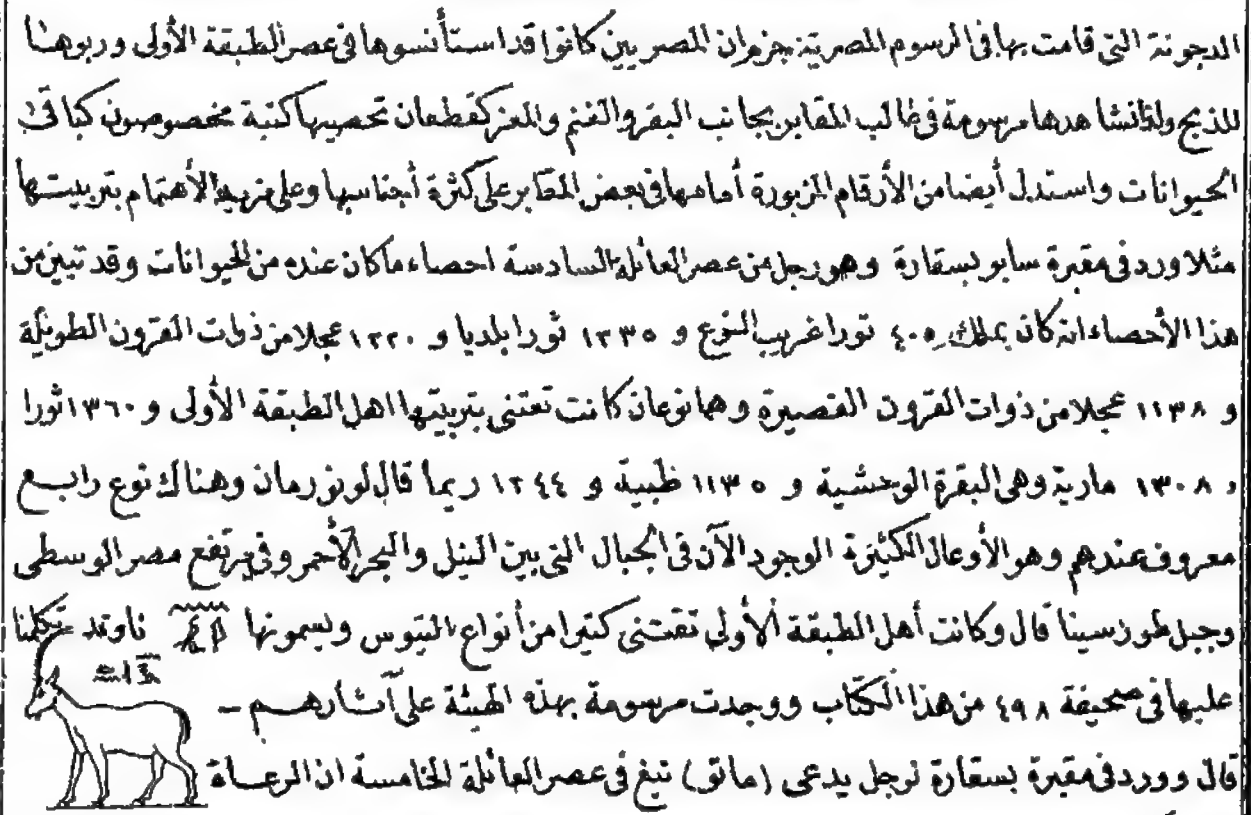 المدجونة التى قامت بها فى الرسوم المصرية جزم ان المصريين كانوا قد استأنسوها فى عصر الطبقة الأولى وربوها
للذبح ولذا نشاهدها مرسومة فى غالب المقابر بجانب البقر والغنم والمعز كقطعان تحصيها كتبة مخصوصون كباقى
الحيوانات واستدل أيضا من الأرقام المزبورة أمامها فى بعض المقابر على كثرة أجناسها وعلى مزيد الأهتمام بتربيتها
مثلا ورد فى مقبرة سابو بسقارة وهو رجل من عصر العائلة السادسة احصاء ما كان عنده من الحيوانات وقد تبين من
هذا الأحصاء انه كان يملك ٤٠٥ ثورا غريب النوع و ١٢٣٥ ثورا بلديا و ١٢٢٠ عجلا من ذوات القرون الطويلة
و ١١٣٨ عجلا من ذوات القرون القصيرة وهما نوعان كانت تعتنى بتربيتها اهل الطبقة الأولى و ١٣٦٠ ثورا
و ١٣٠٨ مارية وهى البقرة الوحشية و ١١٣٥ ظبية و ١٢٤٤ ريما قال لونورمان وهناك نوع رابع
معروف عندهم وهو الأوعال الكثيرة الوجود الآن فى الجبال التى بين النيل والبحر الأحمر وفى مرتفع مصر الوسطى
وجبل طور سينا قال وكانت أهل الطبقة الأولى تقتنى كثيرا من أنواع التيوس ويسمونها ناو قد تكلمنا
عليها فى صحيفة ٤٩٨ من هذا الكتاب ووجدت مرسومة بهذه الهيئة على آثارهم —
قال وورد فى مقبرة بسقارة لرجل يدعى (مانق) نبغ فى عصر العائلة الخامسة ان الرعاة